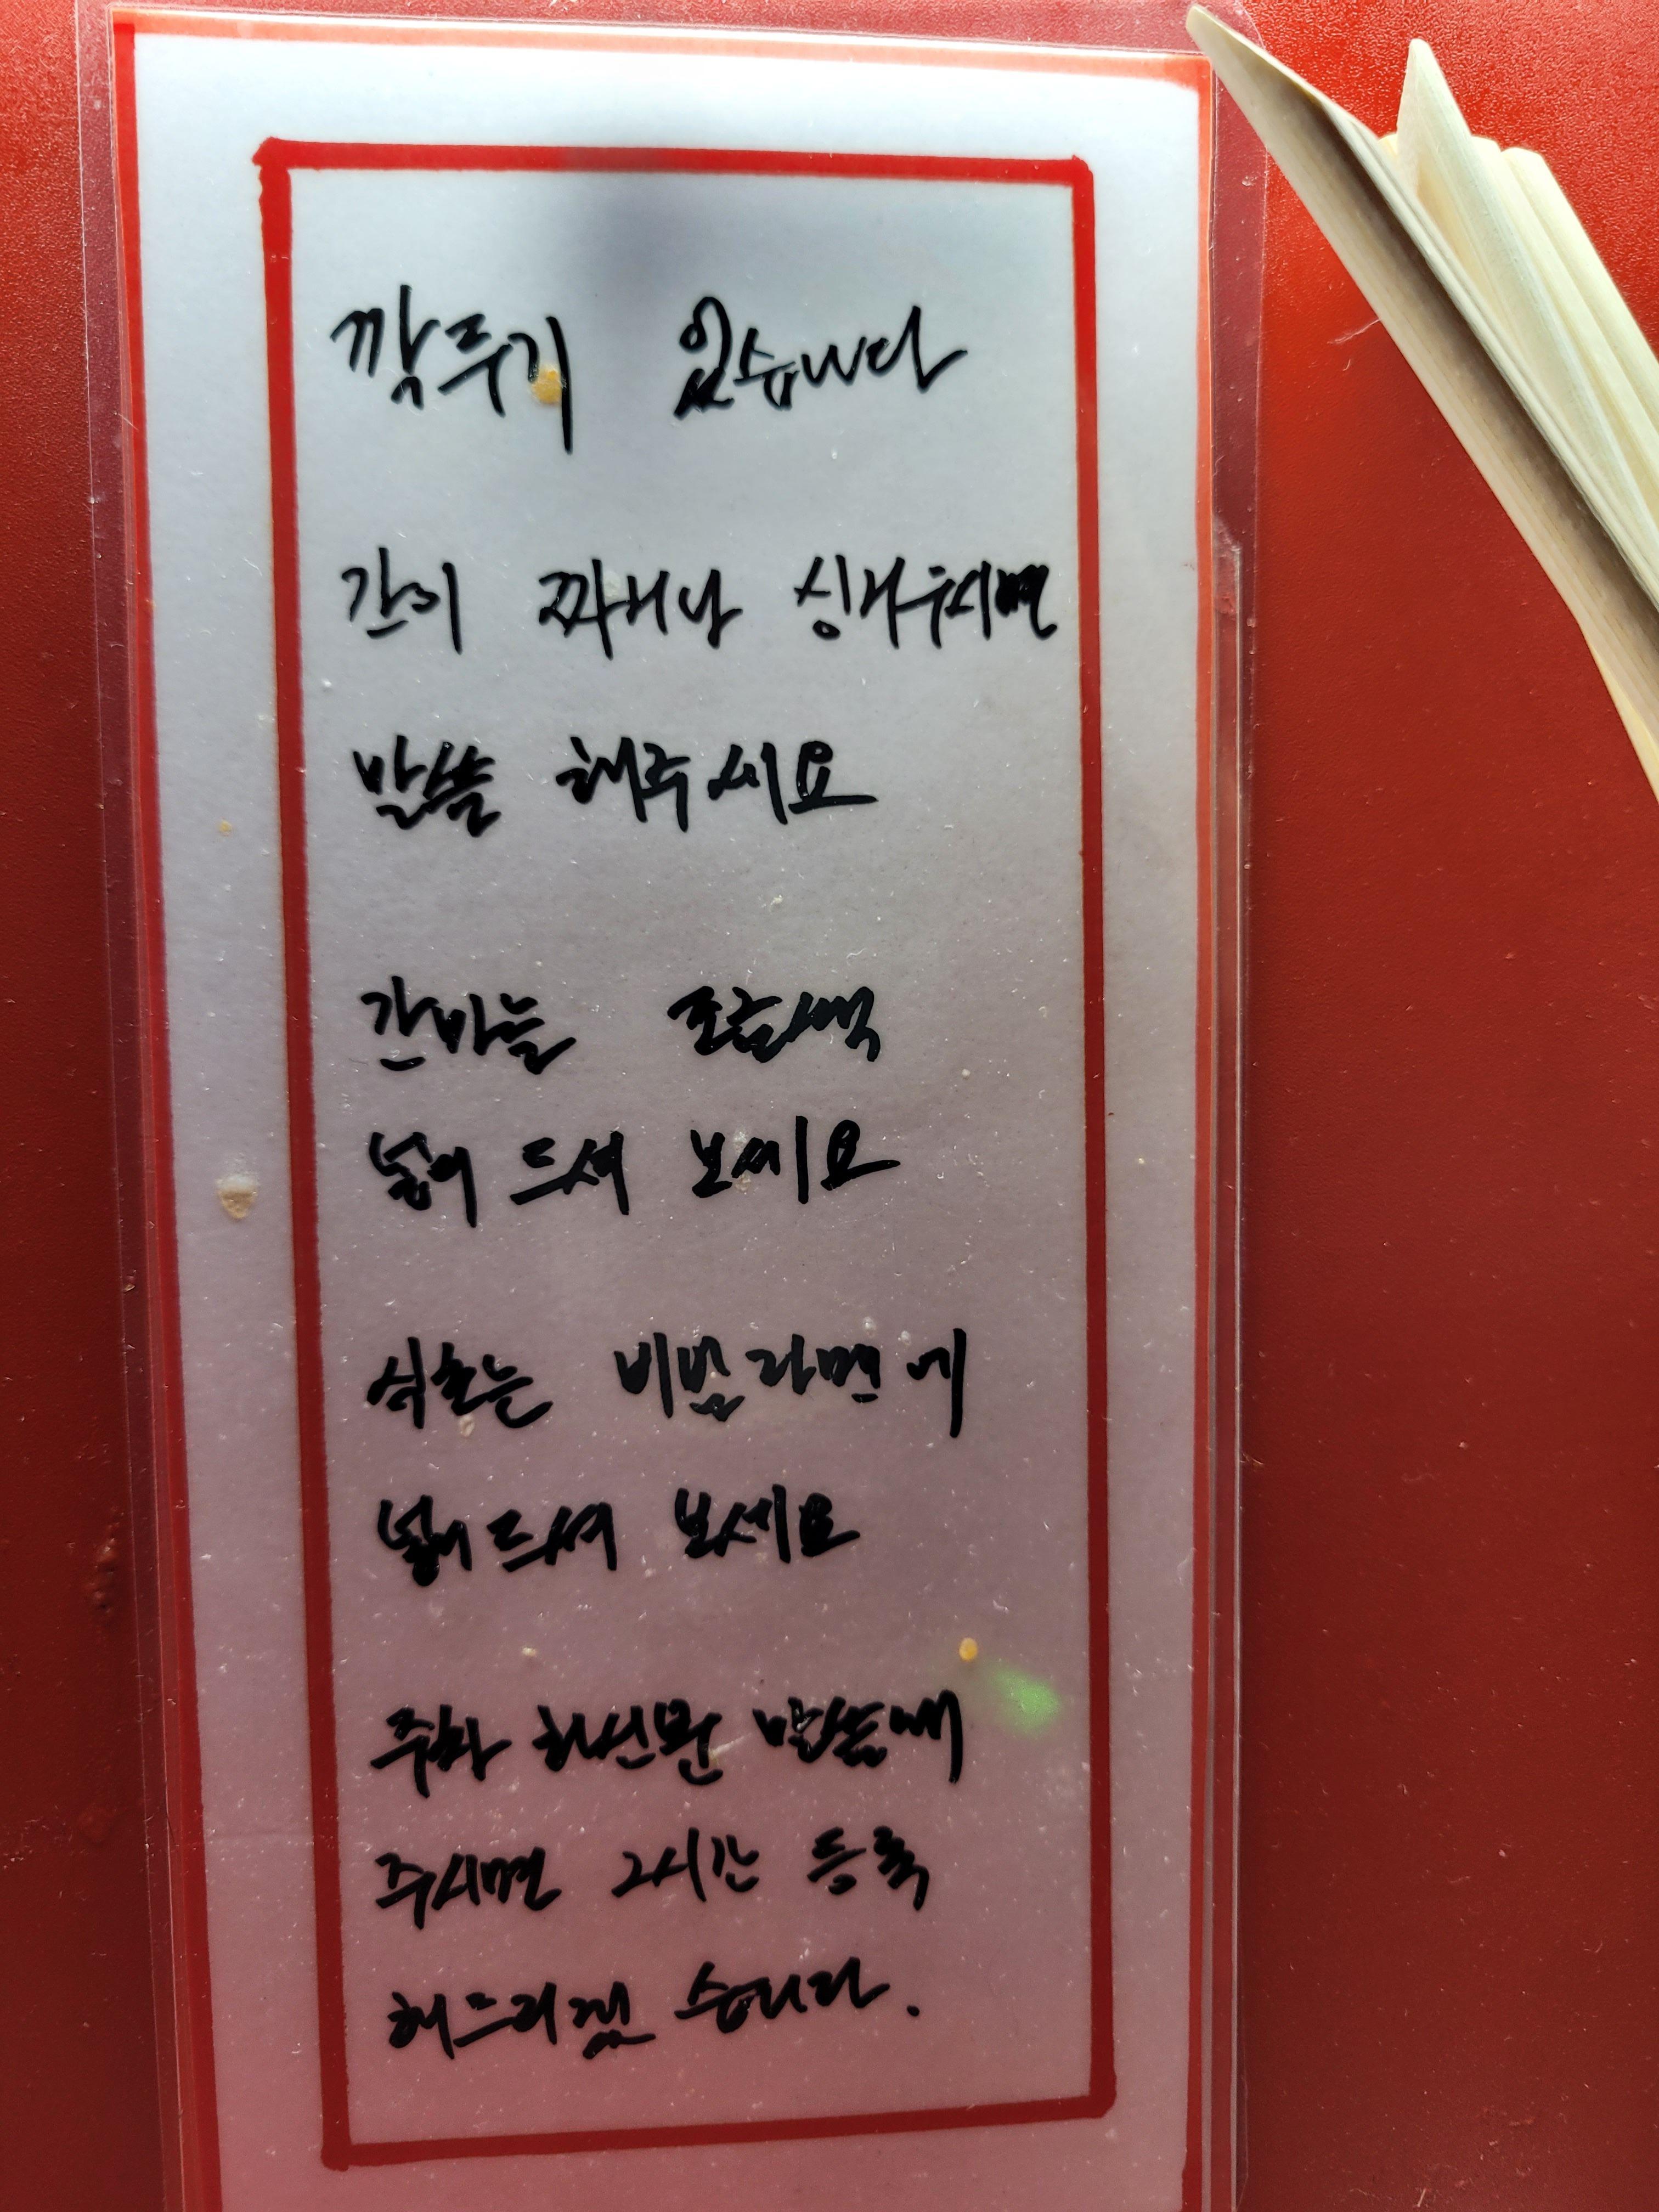 깍두기 있습니다
간이 짜거나 싱거우시면
말씀 해주세요
간마늘 조금씩
넣어 드셔 보세요
식초는 비빔라면에
넣어 드셔 보세요
주차 하신분 말씀해
주시면 2시간 등록
해드리겠 습니다.